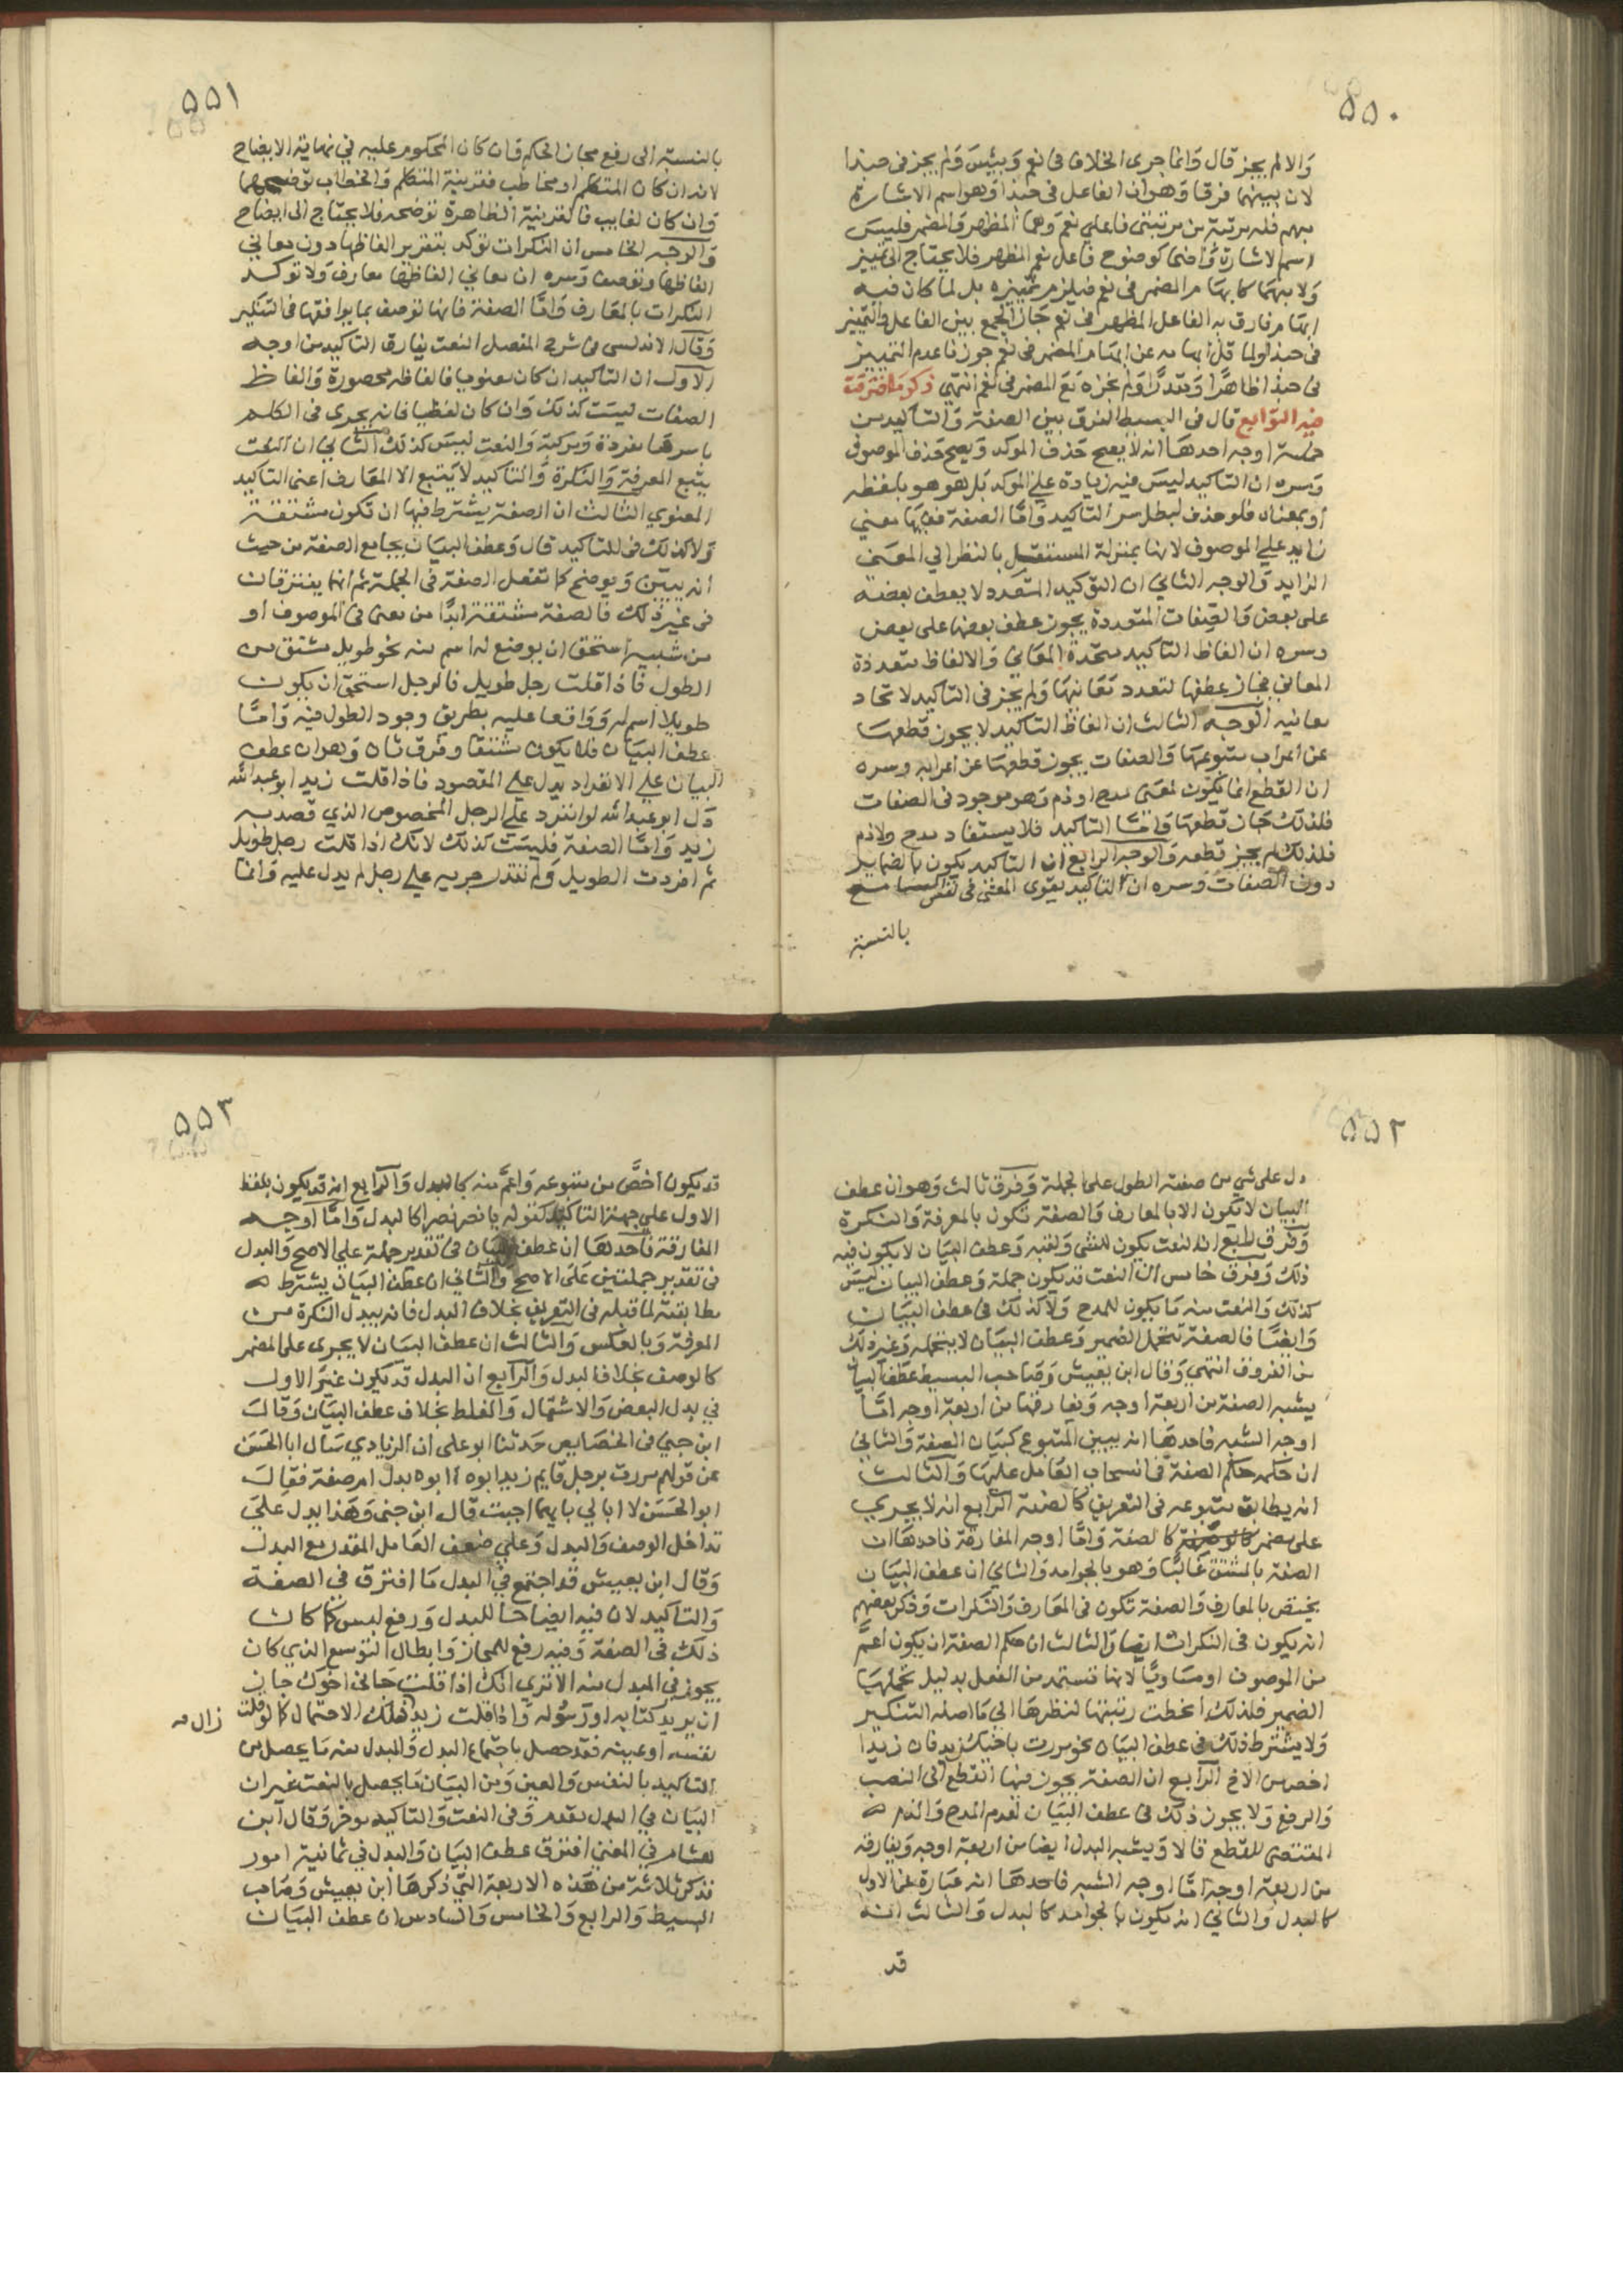 ٥٥٠
والا لم يجز قال وانما جرى الخلاف فى نعم وبيئس ولم يجز فى حبذا
لان بينهما فرقا وهو ان الفاعل فى حبذا وهو اسم الاشارة
مبهم فله مرتبة من مرتبتى فاعلي نعم وهما المظهر والمضمر فليس
اسم الاشارة واضحا كوضوح فاعل نعم المظهر فلا يحتاج الى تمييز
ولا مبهما كابهام المضمر فى نعم فيلزم تمييزه بل لما كان فيه
ابهام فارق به الفاعل المظهر فى نعم جاز الجمع بين الفاعل والتمييز
فى حبذا ولما قل ابهامه عن ابهام المضمر فى نعم جوزنا عدم التمييز
فى حبذا ظاهرا ومقدرا ولم نجزه مع المضمر فى نعم انتهى ذكر ما افترقت
فيه التوابع قال فى البسيط الفرق بين الصفة والتاكيد من
خمسة اوجه احدها انه لا يصح حذف الموكد ويصح حذف الموصوف
وسره ان التاكيد ليس فيه زيادة علي الموكد بل هو هو بلفظه
او بمعناه فلو حذف لبطل سر التاكيد واما الصفة ففيها معنى
زايد علي الموصوف لانها بمنزلة المستقل بالنظر الي المعنى
الزايد والوجه الثاني ان التوكيد المتعدد لا يعطف بعضه
على بعض والصفات المتعددة يجوز عطف بعضها على بعض
وسره ان الفاظ التاكيد متحدة المعاني والالفاظ متعددة
المعاني فجاز عطفها لتعدد معانيها ولم يجز فى التاكيد لاتحاد
معانيه الوجه الثالث ان الفاظ التاكيد لا يجوز قطعها
عن اعراب متبوعها والصفات يجوز قطعها عن اعرابه وسره
ان القطع انما يكون لمعنى مدح او ذم وهو موجود فى الصفات
فلذلك جاز قطعها واما التاكيد فلا يستفاد مدح ولا ذم
فلذلك لم يجز قطعه والوجه الرابع ان التاكيد يكون بالضماير
دون الصفات وسره ان التاكيد يقوى المعنى فى نفس السامع
بالنسبة
٥٥١
بالنسبة الى رفع مجاز الحكم فان كان المحكوم عليه في نهاية الايضاح
لانه ان كان المتكلم او مخاطب فقرينة المتكلم والخطاب توضحهما
وان كان لغايب فالقرينة الظاهرة توضحه فلا يحتاج الى ايضاح
والوجه الخامس ان النكرات توكد بتقرير الفاظها دون معاني
الفاظها وتوصف وسره ان معاني الفاظها معارف ولا توكد
النكرات بالمعارف واما الصفة فانها توصف بما يوافقها فى التنكير
وقال الاندلسى فى شرح المفصل النعت يفارق التاكيد من اوجه
الاول ان التاكيد ان كان معنويا فالفاظه محصورة والفاظ
الصفات ليست كذلك وان كان لفظيا فانه يجرى فى الكلم
باسرها مفردة ومركبة والنعت ليس كذلك الثاني ان النعت
يتبع المعرفة والنكرة والتاكيد لا يتبع الا المعارف اعنى التاكيد
المعنوي الثالث ان الصفة يشترط فيها ان تكون مشتقة
ولا كذلك فى التاكيد قال وعطف البيان يجامع الصفة من حيث
انه يبين ويوضح كما تفعل الصفة فى الجملة ثم انهما يفترقان
فى غير ذلك فالصفة مشتقة ابدا من معنى فى الموصوف او
من شبيه استحق ان يوضع له اسم منه نحو طويل مشتق من
الطول فاذا قلت رجل طويل فالرجل استحق ان يكون
طويلا اسم له وواقعا عليه بطريق وجود الطول فيه واما
عطف البيان فلا يكون مشتقا وفرق ثان وهو ان عطف
البيان علي الانفراد يدل علي المقصود فاذا قلت زيد ابو عبد الله
دل ابو عبد الله لو انفرد علي الرجل المخصوص الذي قصد به
زيد واما الصفة فليست كذلك لانك اذا قلت رجل طويل
ثم افردت الطويل ولم تقدر جريه علي رجل لم يدل عليه وانما
٥٥٢
دل على شي من صفته الطول على الجملة وفرق ثالث وهو ان عطف
البيان لا يكون الا بالمعارف والصفة تكون بالمعرفة والنكرة
وفرق رابع ان النعت يكون للشى ولسببه وعطف البيان لا يكون فيه
ذلك وفرق خامس ان النعت قد يكون جملة وعطف البيان ليس
كذلك والنعت منه ما يكون للمدح ولا كذلك فى عطف البيان
وايضا فالصفة تتحمل الضمير وعطف البيان لا يتحمله وغير ذلك
من الفروق انتهي وقال ابن يعيش وصاحب البسيط عطف البيان
يشبه الصفة من اربعة اوجه ويفارقها من اربعة اوجه اما
اوجه الشبه فاحدها انه يبين المتبوع كبيان الصفة والثاني
ان حكمه حكم الصفة فى انسحاب العامل عليها والثالث
انه يطابق متبوعه فى التعريف كالصفة الرابع انه لا يجري
على مضمر كالصفة واما اوجه المفارقة فاحدها ان
الصفة بالمشتق غالبا وهو بالجوامد والثاني ان عطف البيان
يختص بالمعارف والصفة تكون فى المعارف والنكرات وذكر بعضهم
انه يكون فى النكرات ايضا والثالث ان حكم الصفة ان يكون اعم
من الموصوف او مساويا لانها تستمد من الفعل بدليل تحملها
الضمير فلذلك انحطت رتبتها لنظرها الي ما اصله التنكير
ولا يشترط ذلك فى عطف البيان نحو مررت باخيك زيد فان زيدا
اخص من الاخ الرابع ان الصفة يجوز فيها القطع الى النصب
والرفع ولا يجوز ذلك فى عطف البيان لعدم المدح والذم
المقتضى للقطع قالا ويشبه البدل ايضا من اربعة اوجه ويفارقه
من اربعة اوجه اما اوجه الشبه فاحدها انه عبارة عن الاول
كالبدل والثاني انه يكون بالجوامد كالبدل والثالث انه
قد
٥٥٣
قد يكون اخص من متبوعه واعم منه كالبدل والرابع انه قد يكون بلفظ
الاول علي جهة التاكيد كقوله يا نصر نصرا كالبدل واما اوجه
المفارقة فاحدها ان عطف البيان فى تقدير جملة علي الاصح والبدل
فى تقدير جملتين على الاصح والثاني ان عطف البيان يشترط
مطابقته لما قبله فى التعريف بخلاف البدل فانه يبدل النكرة من
المعرفة وبالعكس والثالث ان عطف البيان لا يجرى على المضمر
كالوصف بخلاف البدل والرابع ان البدل قد يكون غير الاول
في بدل البعض والاشتمال والغلط بخلاف عطف البيان وقال
ابن جني فى الخصايص حدثنا ابو على ان الزيادي سال ابا الحسن
عن قولهم مررت برجل قايم زيد ابوه ا ابوه بدل ام صفة فقال
ابو الحسن لا ابالي بايهما اجبت قال ابن جنى وهذا يدل علي
تداخل الوصف والبدل وعلي ضعف العامل المقدر مع البدل
وقال ابن يعيش قد اجتمع في البدل ما افترق في الصفة
والتاكيد لان فيه ايضاحا للبدل ورفع لبس كما كان
ذلك في الصفة وفيه رفع للمجاز وابطال التوسع الذي كان
يجوز في المبدل منه الا ترى انك اذا قلت جاني اخوك جاز
ان يريد كتابه او رسوله واذا قلت زيد ذلك الاحتمال كما لو قلت
زال
نفسه او عينه فقد حصل باجتماع البدل والمبدل منه ما يحصل من
التاكيد بالنفس والعين ومن البيان ما يحصل بالنعت غير ان
البيان في البدل مقدم وفى النعت والتاكيد موخر وقال ابن
هشام في المغني افترق عطف البيان والبدل في ثمانية امور
فذكر ثلاثة من هذه الاربعة التي ذكرها ابن يعيش وصاحب
البسيط والرابع والخامس والسادس ان عطف البيان